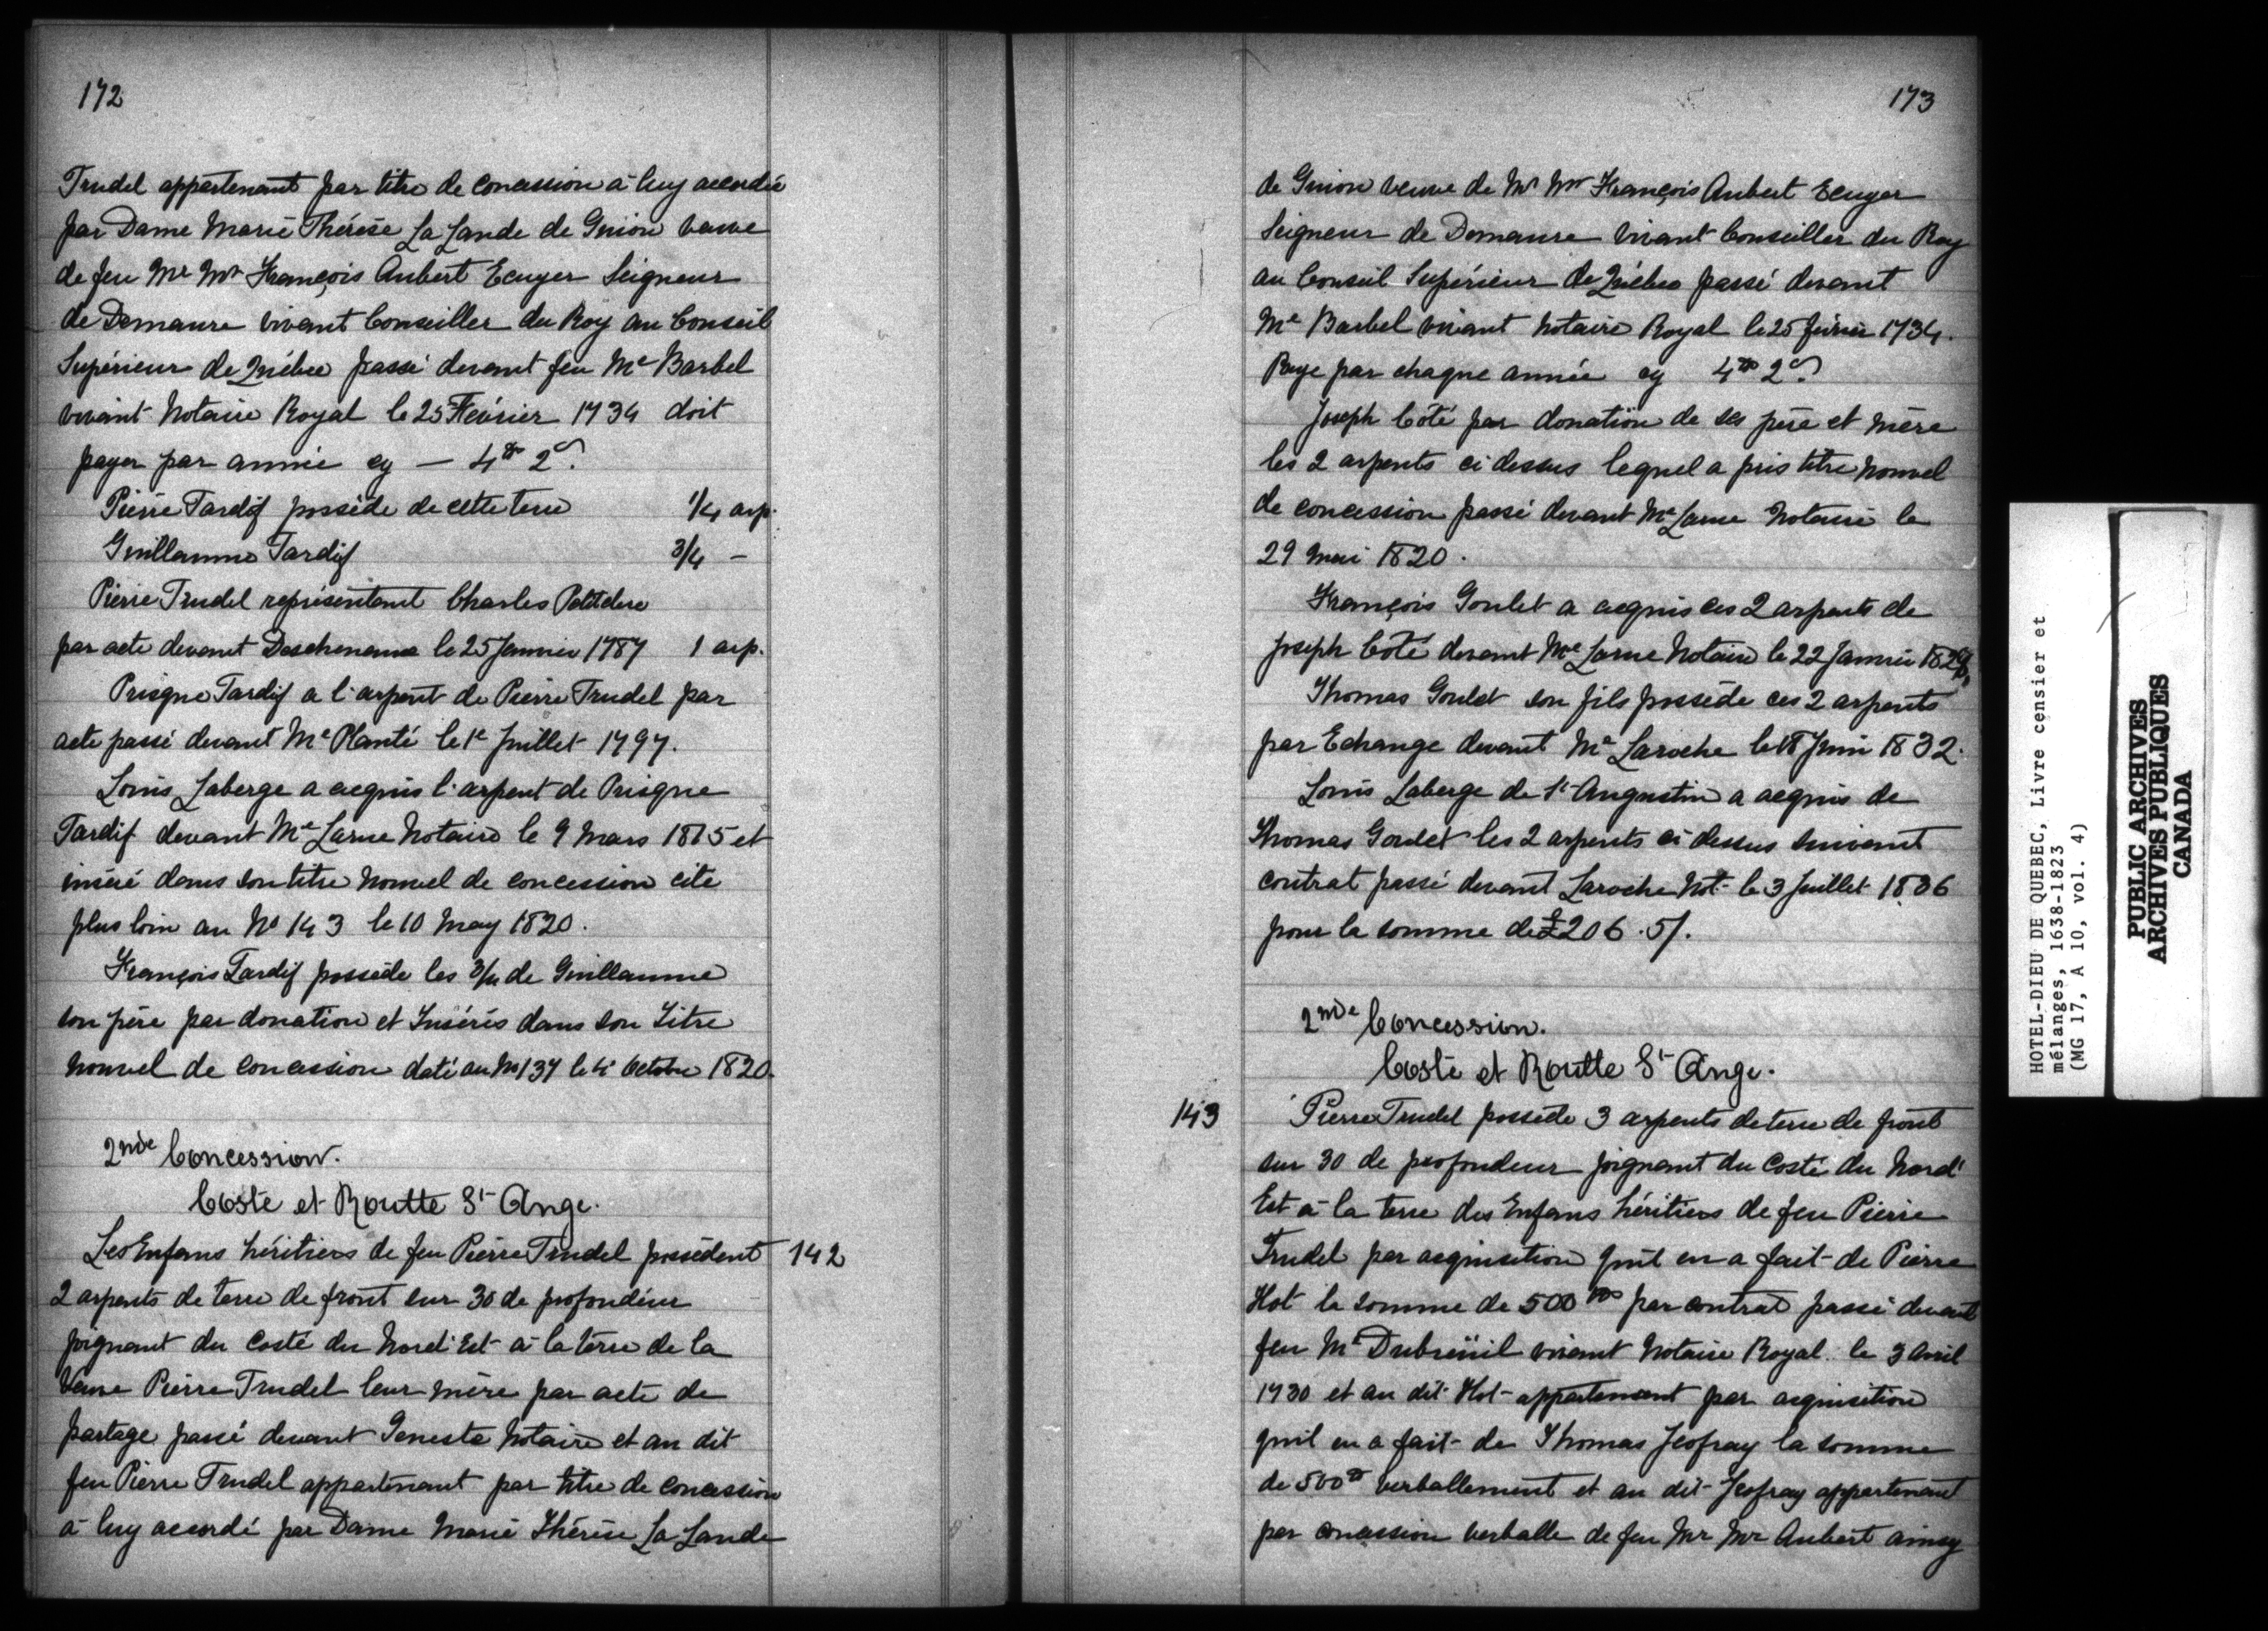 172
Trudel appartenant par titre de concession à luy accordée
par Dame Marie Thérèse La Lande de Guion veuve
de feu Mr Mr François Aubert Ecuyer Seigneur
de Demaure vivant Conseiller du Roy au Conseil
Supérieur de Québec passé devant feu Me Barbel
vivant Notaire Royal le 25 Février 1734 doit
payer par année cy — 4tt 2s
Pierre Tardif possède de cette terre 1/4 arp.
Guillaume Tardif 3/4 –
Pierre Trudel représentant Charles Petitclerc
par acte devant Deschenaux le 25 Janvier 1787 1 arp.
Prisque Tardif a l'arpent de Pierre Trudel par
acte passé devant Me Planté le 1e Juillet 1797.
Louis Laberge a acquis l'arpent de Prisque
Tardif devant Me Larue Notaire le 9 Mars 1815 et
inséré dans son titre nouvel de concession cité
plus loin au No 143 le 10 May 1820.
François Tardif possède les 3/4 de Guillaume
son père par donation et Insérés dans son Titre
nouvel de concession daté au No 137 le 4 Octobre 1820.
2nde Concession.
Costé et Routte St Ange.
142
Les Enfans héritiers de feu Pierre Trudel possèdent
2 arpents de terre de front sur 30 de profondeur
joignant du costé du Nord Est à la terre de la
Veuve Pierre Trudel leur mère par acte de
partage passé devant Geneste Notaire et au dit
feu Pierre Trudel appartenant par titre de concession
à luy accordé par Dame Marie Thérèse La Lande
173
de Guion veuve de Mr Mr François Aubert Ecuyer
Seigneur de Demaure vivant Conseiller du Roy
au Conseil Supérieur de Québec passé devant
Me Barbel vivant Notaire Royal le 25 février 1734.
Paye par chaque année cy 4tt 2s
Joseph Côté par donation de ses père et mère
les 2 arpents ci dessus lequel a pris titre nouvel
de concession passé devant Me Larue Notaire le
29 Mai 1820.
François Goulet a acquis ces 2 arpents de
Joseph Côté devant Me Larue Notaire le 22 Janvier
Thomas Goulet son fils possède ces 2 arpents
par Echange devant Me Laroche le 18 Juin 1832.
Louis Laberge de St Augustin a acquis de
Thomas Goulet les 2 arpents ci dessus suivant
contrat passé devant Laroche Not. le 3 Juillet 1836
pour la somme de £206.5/.
2nde Concession.
Costé et Routte St Ange.
143
Pierre Trudel possède 3 arpents de terre de front
sur 30 de profondeur joignant du costé du Nord
Est à la terre des Enfans héritiers de feu Pierre
Trudel par acquisition quil en a fait de Pierre
Hot la somme de 500tt par contrat passé devant
feu Me Dubreüil vivant Notaire Royal le 3 Avril
1730 et au dit Hot appartenant par acquisition
quil en a fait de Thomas Jeofray la somme
de 500tt verballement et au dit Jeofray appartenant
par concession verballe de feu Mr Mr Aubert ainsy
HOTEL-DIEU DE QUEBEC, Livre censier et
mélanges, 1638-1823
(MG 17, A 10, vol. 4)
PUBLIC ARCHIVES
ARCHIVES PUBLIQUES
CANADA